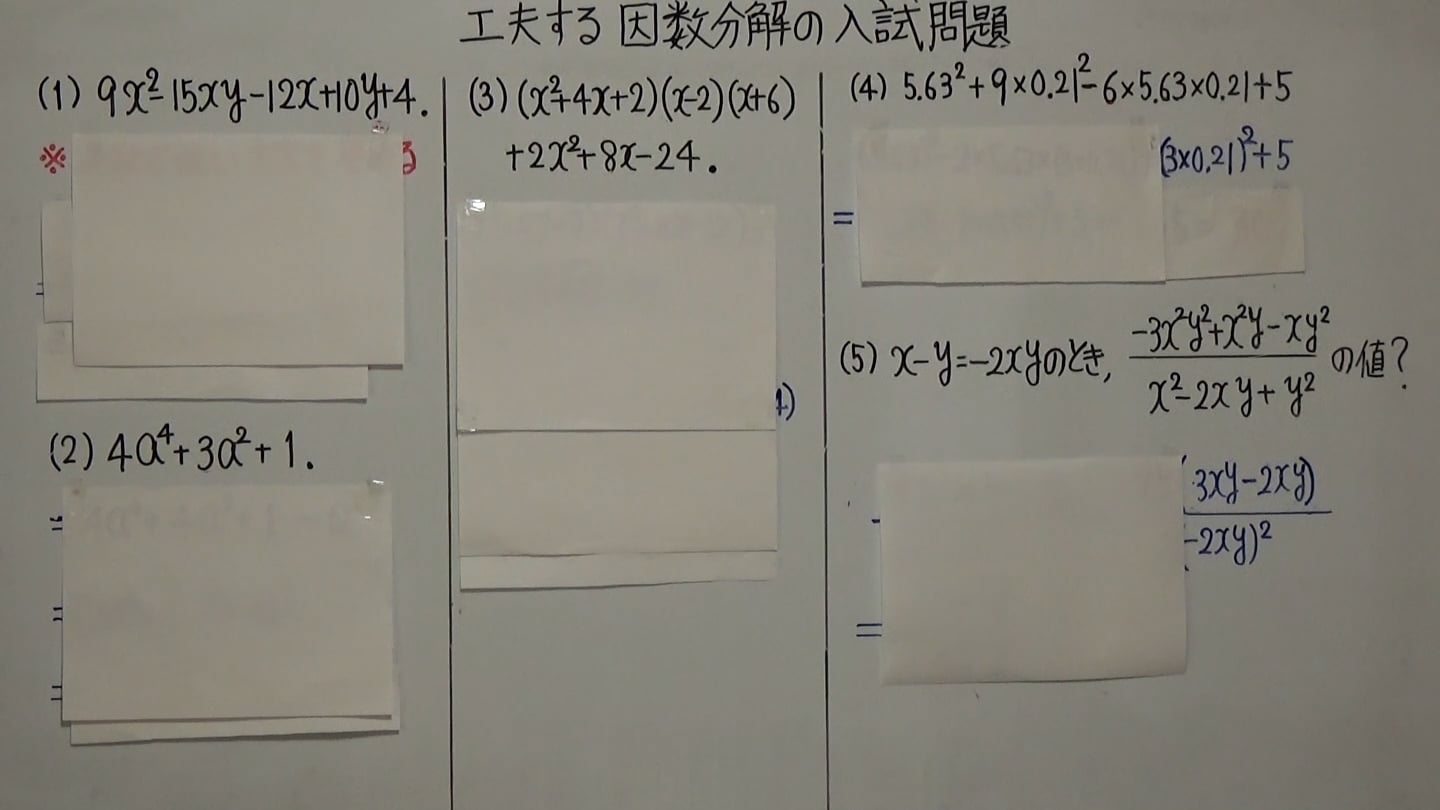 工夫する因数分解の入試問題
(1) 9x²-15xy-12x+10y+4.
※ る
=
(2) 4a⁴+3a²+1.
=
=
=
(3) (x²+4x+2)(x-2)(x+6)
+2x²+8x-24.
)
(4) 5.63²+9×0.21²-6×5.63×0.21+5
(3×0.21)²+5
=
(5) x-y=-2xyのとき, (-3x²y²+x²y-xy²)/(x²-2xy+y²) の値?
3xy-2xy)
-2xy)²
=